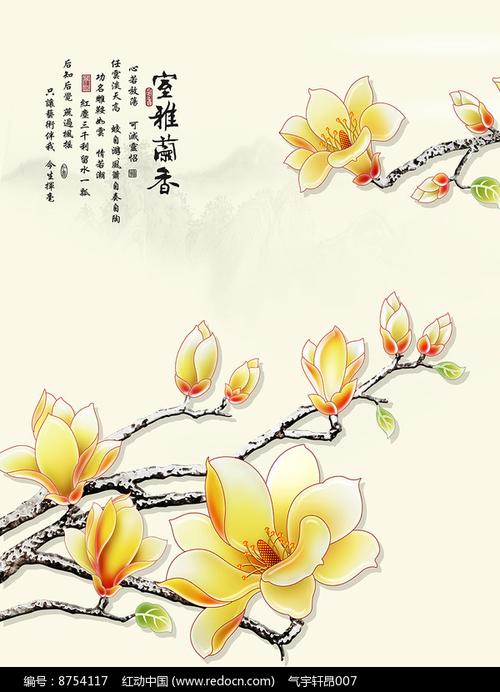 室雅蘭香
心若放蕩 可滅靈侶
任雲淡天高 蛟自游風蕭自奏自陶
功名雕鞍如雲 情若潮
紅塵三千利留水一瓢
后知后覺 蔬過楓搖
只讓藝術伴我 今生揮毫
编号：8754117 红动中国 (www.redocn.com) 气宇轩昂007